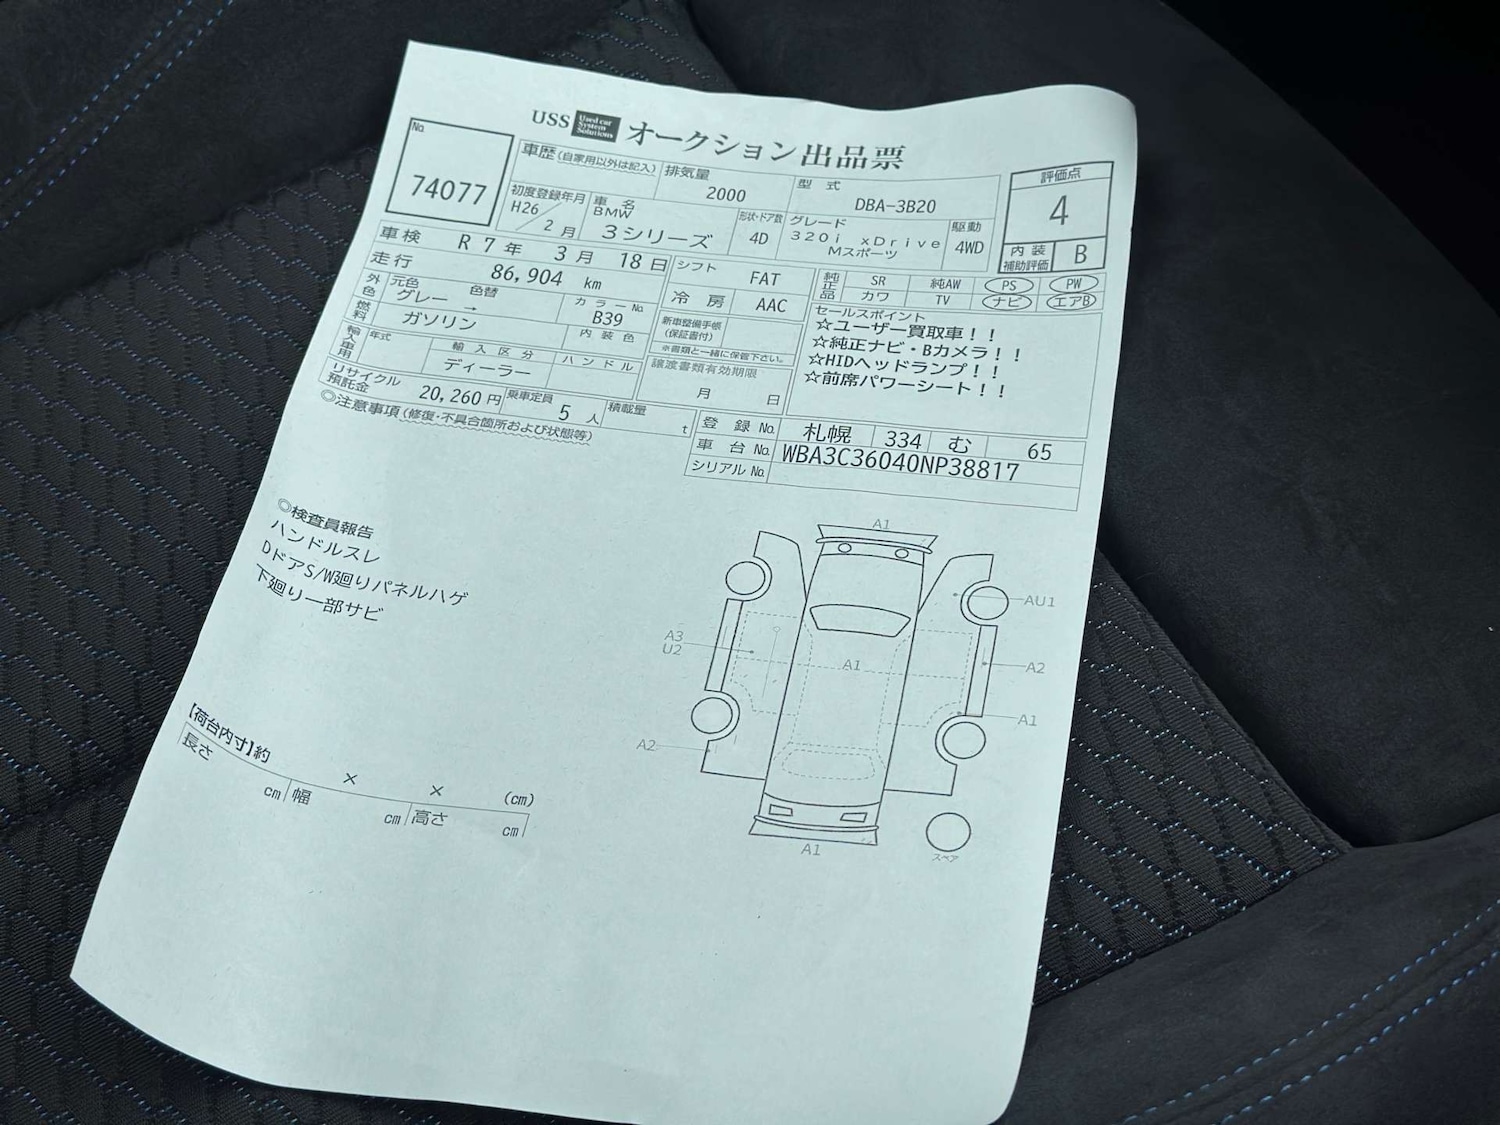 USS Used car System Solutions オークション出品票
No. 74077
車歴(自家用以外は記入) 排気量 2000 型式 DBA-3B20
評価点 4
初度登録年月 H26/2月 車名 BMW 3シリーズ 形状・ドア数 4D グレード 320i xDrive Mスポーツ 駆動 4WD
内装補助評価 B
車検 R7年 3月 18日
走行 86,904 km
シフト FAT
冷房 AAC
純正品 SR 純AW PS PW
カワ TV ナビ エアB
外色 元色 グレー → 色替 カラーNo. B39
燃料 ガソリン 内装色
新車整備手帳(保証書付)
※書類と一緒に保管下さい。
セールスポイント
☆ユーザー買取車!!
☆純正ナビ・Bカメラ!!
☆HIDヘッドランプ!!
☆前席パワーシート!!
輸入車用 年式 輸入区分 ディーラー ハンドル
譲渡書類有効期限 月 日
リサイクル預託金 20,260円 乗車定員 5人 積載量 t
登録No. 札幌 334 む 65
車台No. WBA3C36040NP38817
シリアルNo.
◎注意事項(修復・不具合箇所および状態等)
◎検査員報告
ハンドルスレ
DドアS/W廻りパネルハゲ
下廻り一部サビ
A1
AU1
A3
U2
A1
A2
A1
A2
A1
スペア
【荷台内寸】約 × × (cm)
長さ cm 幅 cm 高さ cm